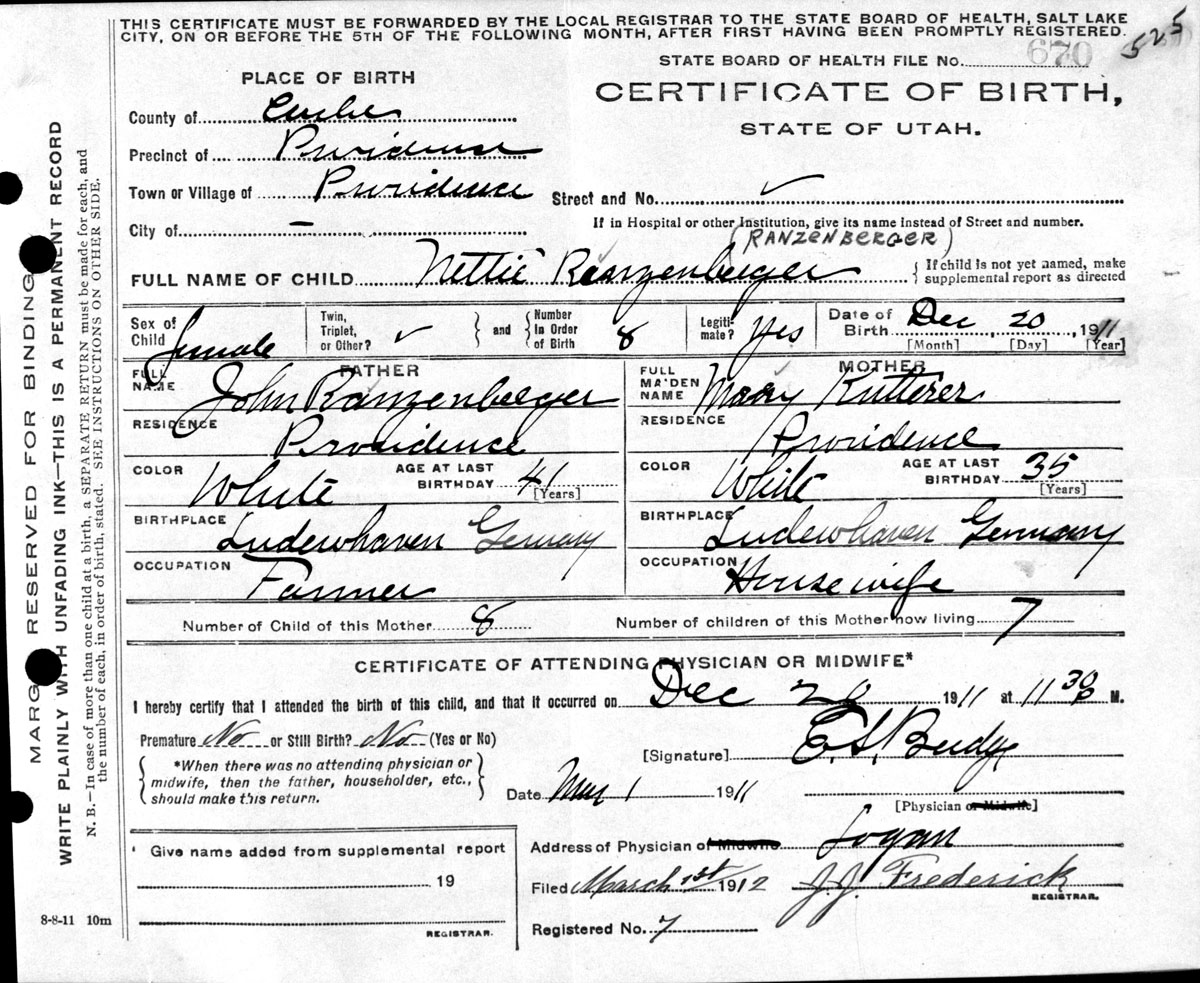 THIS CERTIFICATE MUST BE FORWARDED BY THE LOCAL REGISTRAR TO THE STATE BOARD OF HEALTH, SALT LAKE
CITY, ON OR BEFORE THE 5TH OF THE FOLLOWING MONTH, AFTER FIRST HAVING BEEN PROMPTLY REGISTERED.
525
STATE BOARD OF HEALTH FILE No. 670
PLACE OF BIRTH
CERTIFICATE OF BIRTH,
STATE OF UTAH.
County of Cache
Precinct of Providence
Town or Village of Providence
Street and No. ✓
City of –
If in Hospital or other Institution, give its name instead of Street and number.
(RANZENBERGER)
FULL NAME OF CHILD Nettie Ranzenberger
{ If child is not yet named, make
supplemental report as directed
Sex of Child female
Twin, Triplet, or Other? ✓ } and { Number in Order of Birth 8
Legiti-mate? Yes
Date of Birth Dec 20, 1911
[Month] [Day] [Year]
FATHER
FULL NAME John Ranzenberger
MOTHER
FULL MAIDEN NAME Mary Kutterer
RESIDENCE Providence
RESIDENCE Providence
COLOR White AGE AT LAST BIRTHDAY 41 [Years]
COLOR White AGE AT LAST BIRTHDAY 35 [Years]
BIRTHPLACE Ludewhaven Germany
BIRTHPLACE Ludewhaven Germany
OCCUPATION Farmer
OCCUPATION Housewife
Number of Child of this Mother 8
Number of children of this Mother now living 7
CERTIFICATE OF ATTENDING PHYSICIAN OR MIDWIFE*
I hereby certify that I attended the birth of this child, and that it occurred on Dec 1911 at 11 30 P M.
Premature No or Still Birth? No (Yes or No)
[Signature] E. S. Budge
{ *When there was no attending physician or
midwife, then the father, householder, etc.,
should make this return. }
Date Mar 1 1911
[Physician or Midwife]
Address of Physician or Midwife Logan
Give name added from supplemental report
19
Filed March 1st 1912 J. J. Frederick
REGISTRAR.
8-8-11 10m
REGISTRAR.
Registered No. 7
MARGIN RESERVED FOR BINDING
WRITE PLAINLY WITH UNFADING INK—THIS IS A PERMANENT RECORD
N. B.—In case of more than one child at a birth, a SEPARATE RETURN must be made for each, and
the number of each, in order of birth, stated. SEE INSTRUCTIONS ON OTHER SIDE.